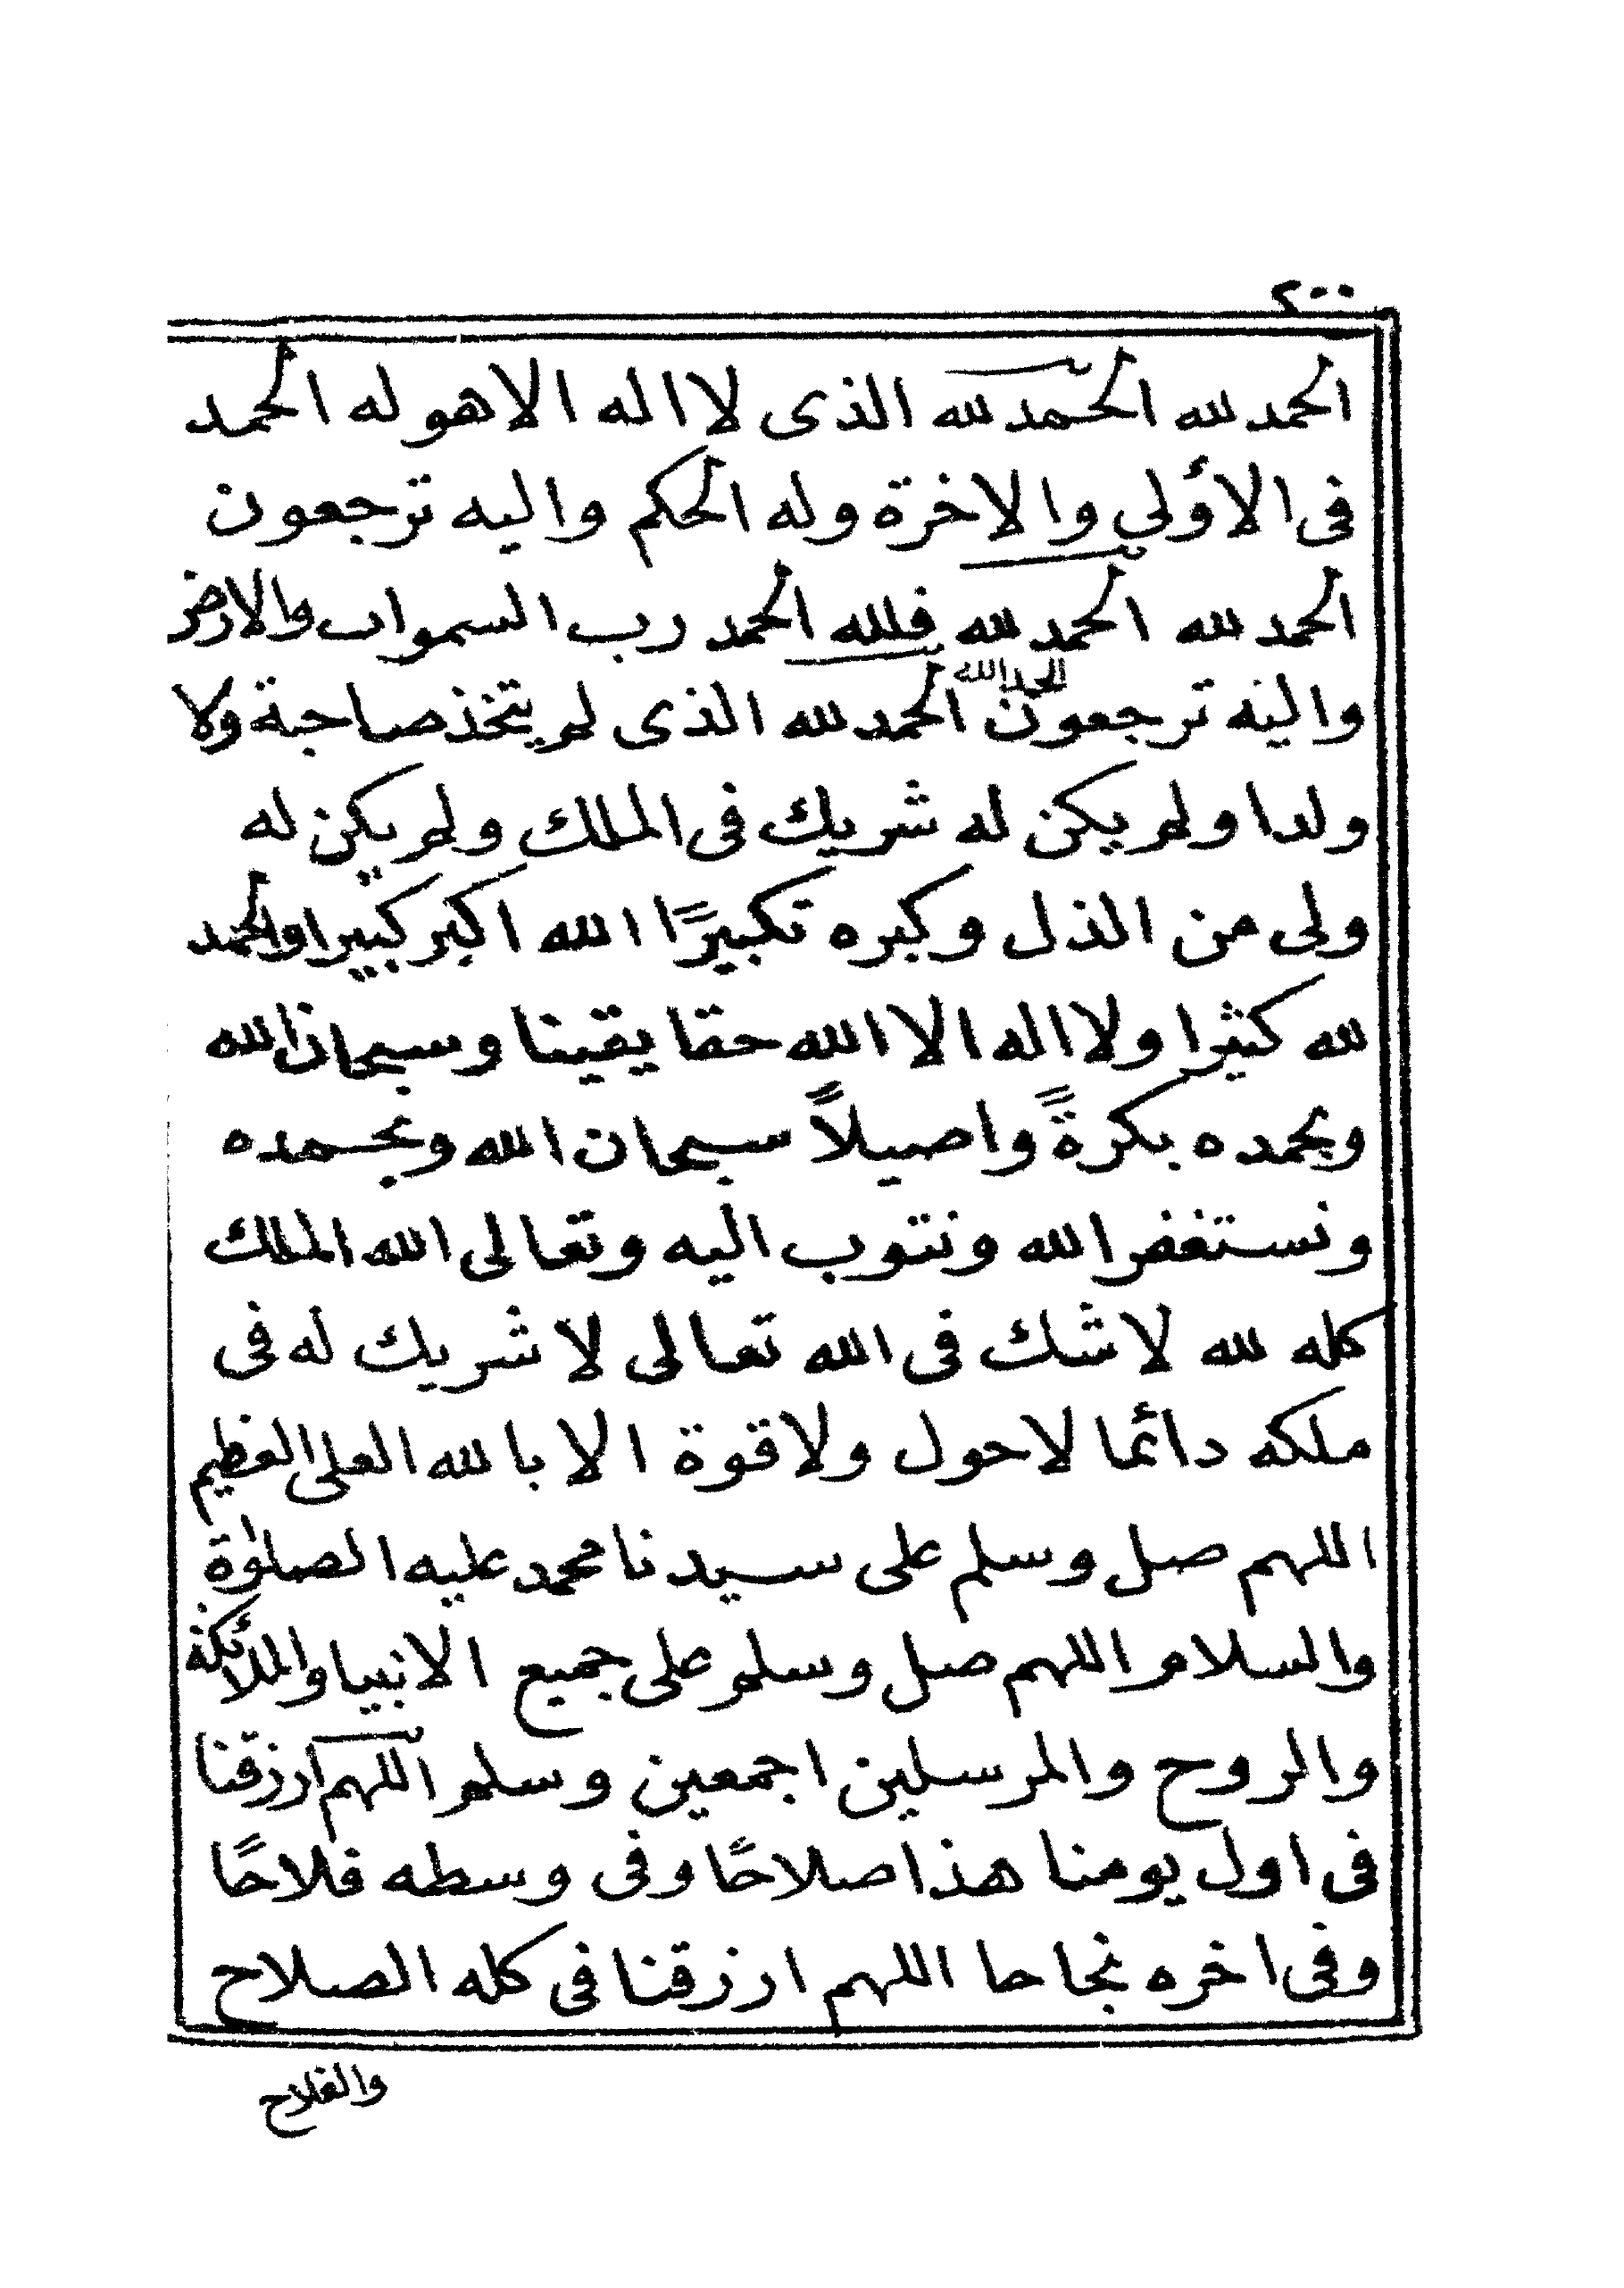 ٢٠٠
الحمد لله الحمد لله الذى لا اله الا هو له الحمد
فى الأولى والاخرة وله الحكم واليه ترجعون
الحمد لله الحمد لله فلله الحمد رب السموات والارض
واليه ترجعون الحمد لله الحمد لله الذى لم يتخذ صاحبة ولا
ولدا ولم يكن له شريك فى الملك ولم يكن له
ولى من الذل وكبره تكبيرًا الله اكبر كبيرا والحمد
لله كثيرا ولا اله الا الله حقا يقينا وسبحان الله
وبحمده بكرةً واصيلاً سبحان الله وبحمده
ونستغفر الله ونتوب اليه وتعالى الله الملك
كله لله لا شك فى الله تعالى لا شريك له فى
ملكه دائما لا حول ولا قوة الا بالله العلى العظيم
اللهم صل وسلم على سيدنا محمد عليه الصلوة
والسلام اللهم صل وسلم على جميع الانبيا والملائكة
والروح والمرسلين اجمعين وسلم اللهم ارزقنا
فى اول يومنا هذا صلاحًا وفى وسطه فلاحًا
وفى اخره نجاحا اللهم ارزقنا فى كله الصلاح
والفلاح